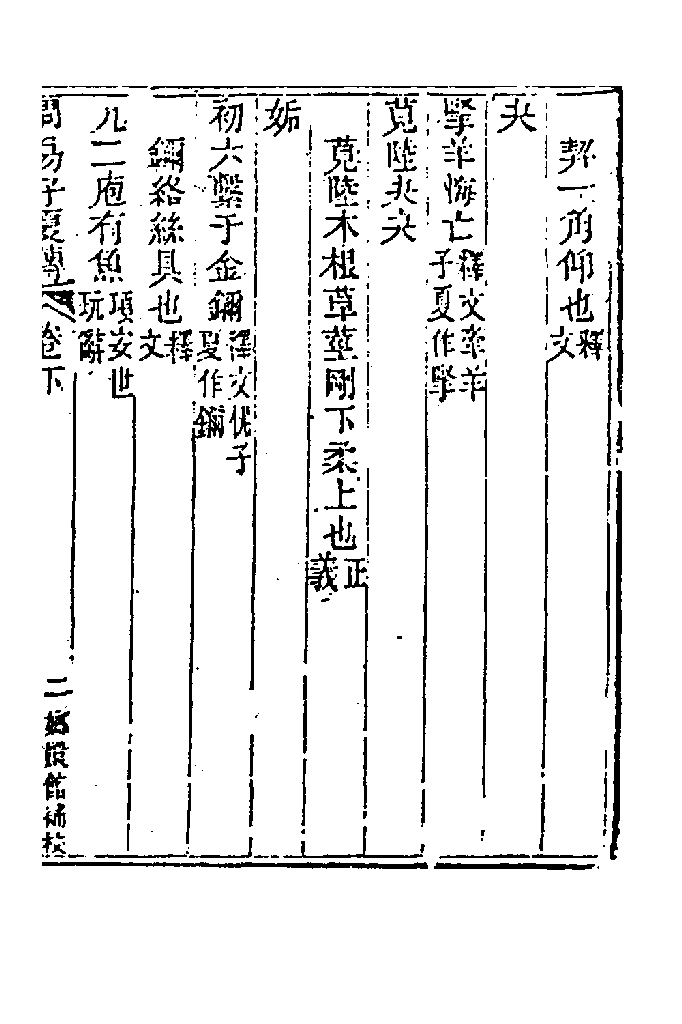 契一角仰也釋文
夬
掔羊悔亡釋文牽羊子夏作掔
莧陸夬夬
莧陸木根草莖剛下柔上也正義
姤
初六繫于金鑈釋文柅子夏作鑈
鑈絡絲具也釋文
九二庖有魚項安世玩辭
周易子夏傳 卷下 二 嫏嬛館補校